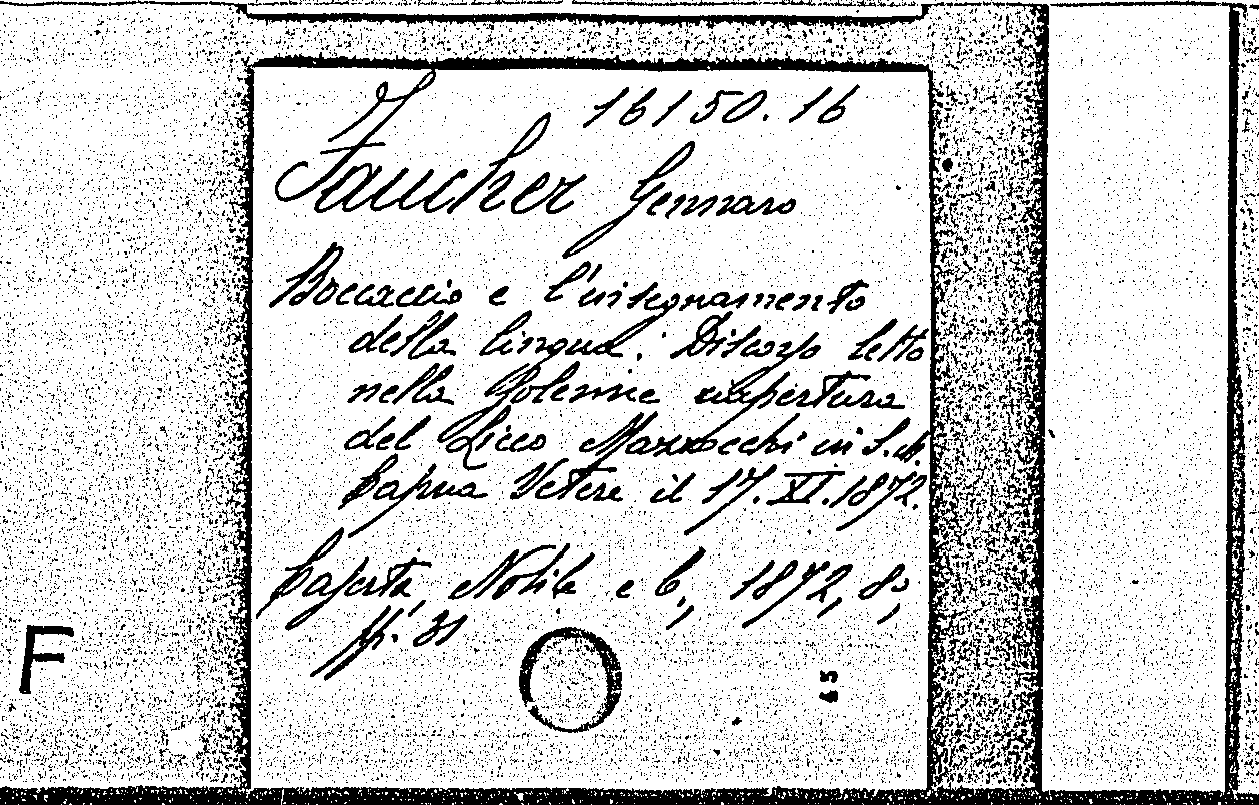 F 16150.16
Faucher Gennaro
Boccaccio e l'insegnamento
della lingua: Discorso letto
nella Solenne riapertura
del Liceo Mazzocchi in S. M.
Capua Vetere il 17. XI. 1872.
Caserta, Nobile e C., 1872, 8º,
pp. 31
F